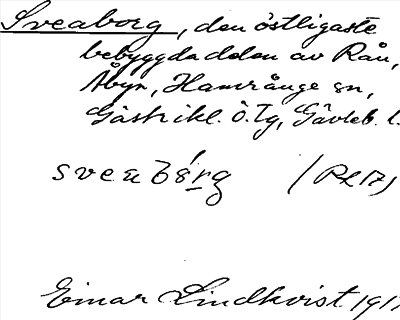 Sveaborg, den östligaste
bebyggda delen av Rån,
Åbyn, Hamrånge sn,
Gästrikl. ö. Tg, Gävleb. l.
sveabórg (Rl 17)
Einar Lindkvist 191